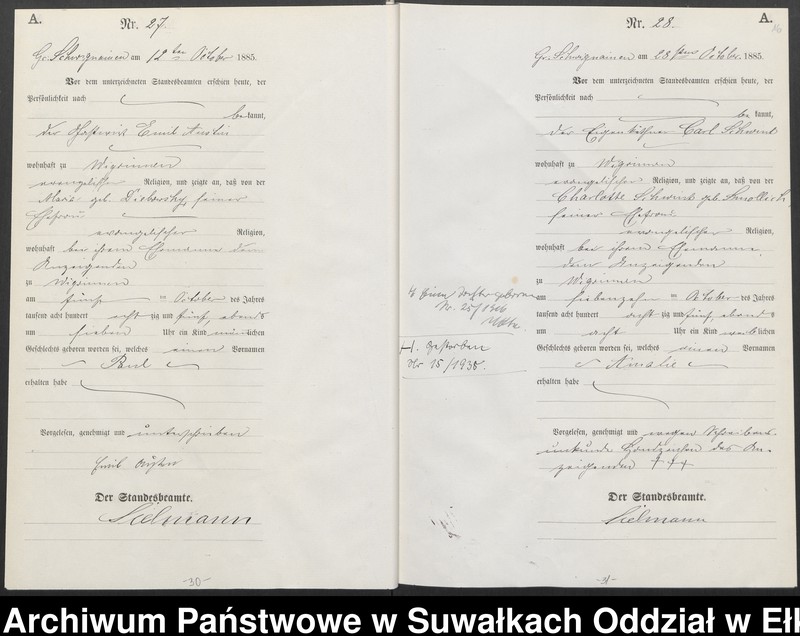 A.
Nr. 27.
Gr. Schwignainen am 12ten October 1885.
Vor dem unterzeichneten Standesbeamten erschien heute, der
Persönlichkeit nach
bekannt,
der Emil
wohnhaft zu Wigrinnen
evangelischer Religion, und zeigte an, daß von der
geb. seiner
Ehefrau
evangelischer Religion,
wohnhaft bei ihrem Ehemanne dem
Anzeigenden
zu Wigrinnen
am fünf ten October des Jahres
tausend acht hundert acht zig und fünf, abends
um sieben Uhr ein Kind männlichen
Geschlechts geboren worden sei, welches einen Vornamen
Paul
erhalten habe
Vorgelesen, genehmigt und unterschrieben
Emil
Der Standesbeamte.
Sielmann
-30-
A.
Nr. 28.
Gr. Schwignainen am 28sten October 1885.
Vor dem unterzeichneten Standesbeamten erschien heute, der
Persönlichkeit nach
bekannt,
der Eigenkäthner Carl Schwent
wohnhaft zu Wigrinnen
evangelischer Religion, und zeigte an, daß von der
Charlotte Schwent geb.
seiner Ehefrau
evangelischer Religion,
wohnhaft bei ihrem Ehemanne
dem Anzeigenden
zu Wigrinnen
am siebenzehn ten October des Jahres
tausend acht hundert acht zig und fünf, abends
um acht Uhr ein Kind weiblichen
Geschlechts geboren worden sei, welches einen Vornamen
Amalie
erhalten habe
Vorgelesen, genehmigt und wegen Schreibens-
unkunde Handzeichen des An-
zeigenden +++
Der Standesbeamte.
Sielmann
-31-
Tochter geboren
Nr. 25/
H. Gestorben
Nr 15/1938.
Archiwum Państwowe w Suwałkach Oddział w Ełk